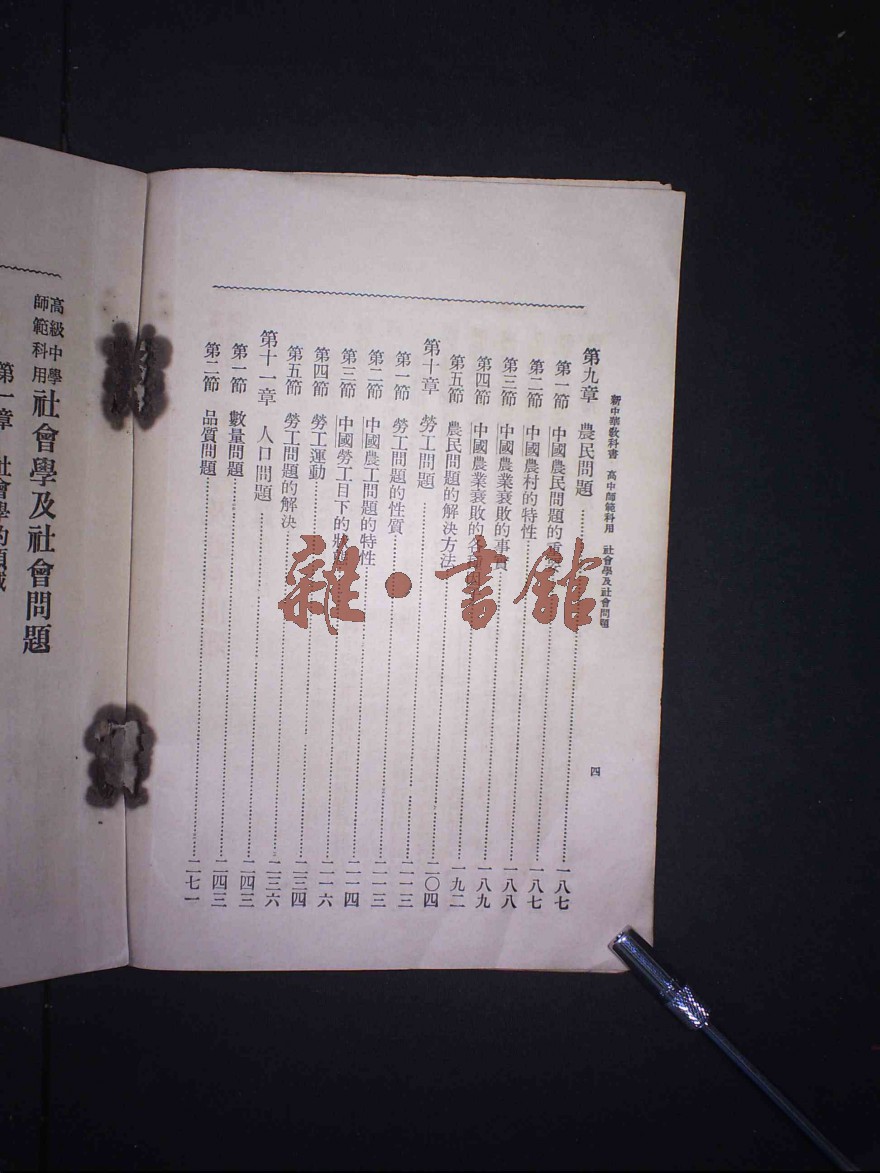 新中華教科書 高中師範科用 社會學及社會問題 四
第九章 農民問題……一八七
第一節 中國農民問題的……一八七
第二節 中國農村的特性……一八八
第三節 中國農業衰敗的事實……一八九
第四節 中國農業衰敗的各……一九二
第五節 農民問題的解決方法……二〇四
第十章 勞工問題……二一三
第一節 勞工問題的性質……二一三
第二節 中國農工問題的特性……二一四
第三節 中國勞工目下的……二一六
第四節 勞工運動……二三四
第五節 勞工問題的解決……二三六
第十一章 人口問題……二四三
第一節 數量問題……二四三
第二節 品質問題……二七一
高級中學
師範科用
社會學及社會問題
第一章 社會學的領域
雜·書館